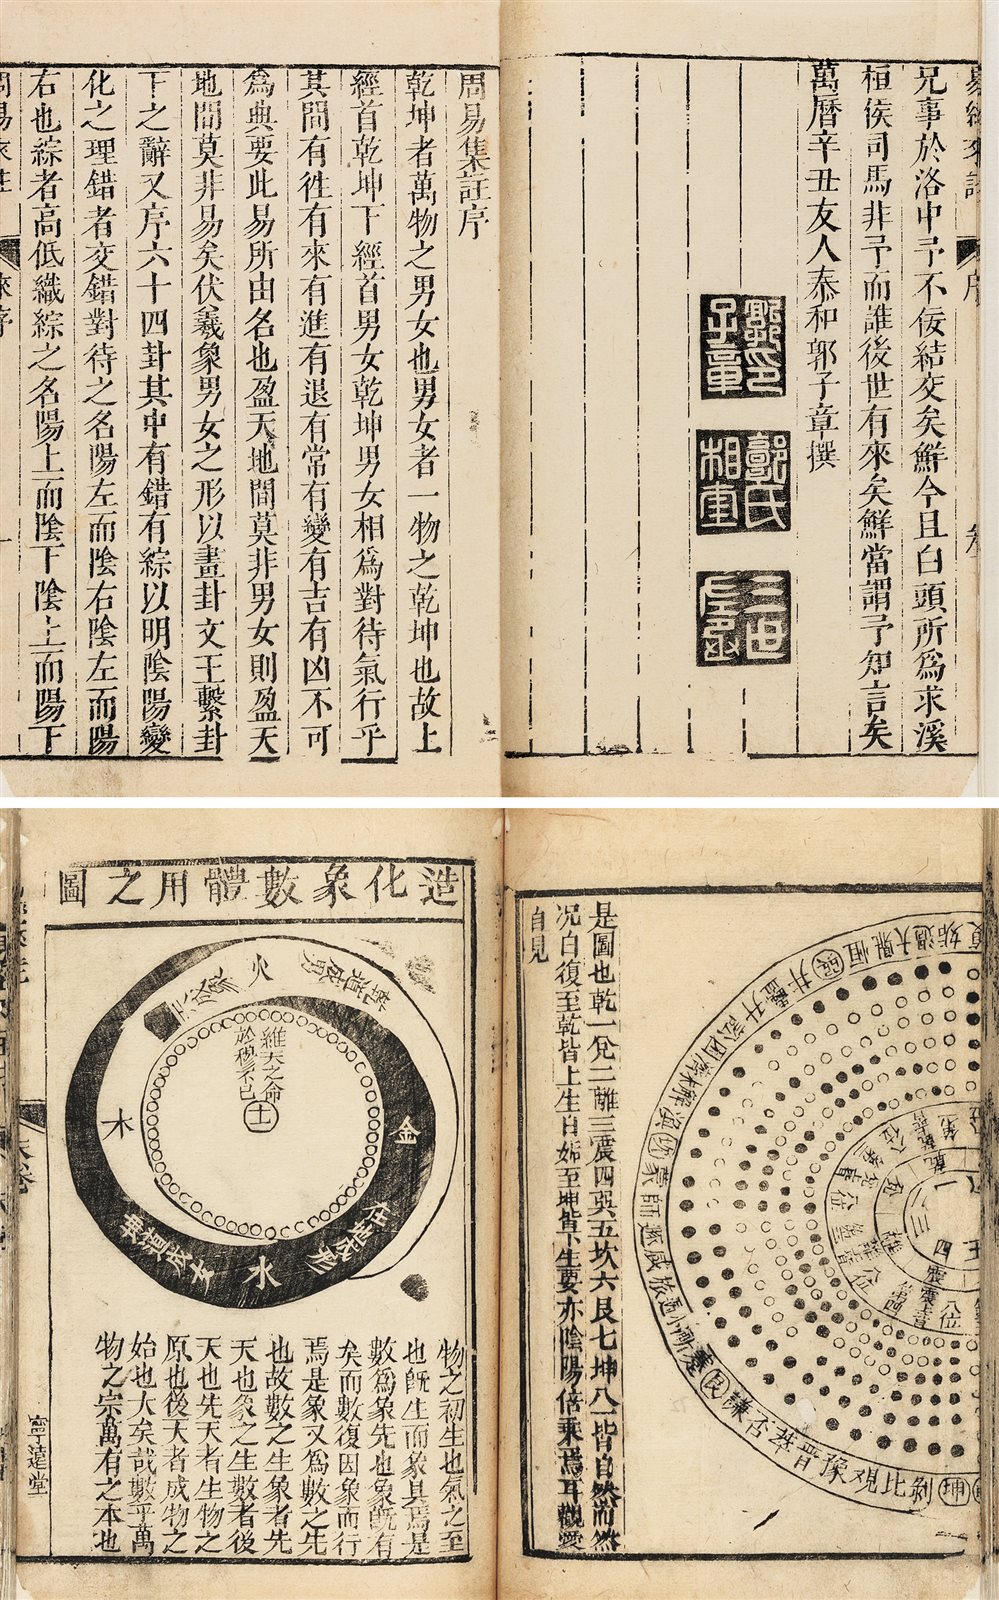 兄事於洛中予不佞結交矣鮮今且白頭所爲求溪
桓侯司馬非予而誰後世有來矣鮮當謂予知言矣
萬曆辛丑友人泰和郭子章撰
郭氏
相奎
周易集註序
乾坤者萬物之男女也男女者一物之乾坤也故上
經首乾坤下經首男女乾坤男女相爲對待氣行乎
其間有徃有來有進有退有常有變有吉有凶不可
爲典要此易所由名也盈天地間莫非男女則盈天
地間莫非易矣伏羲象男女之形以畫卦文王繫卦
下之辭又序六十四卦其中有錯有綜以明陰陽變
化之理錯者交錯對待之名陽左而陰右陰左而陽
右也綜者高低織綜之名陽上而陰下陰上而陽下
姤大過鼎恒巽井蠱升訟困未濟解渙坎蒙師遯咸旅小過漸蹇艮謙否萃晉豫觀比剝坤
是圖也乾一兌二離三震四巽五坎六艮七坤八皆自然而然
况自復至乾皆上生自姤至坤皆下生要亦陰陽倍乘焉耳觀㸔
自見
造化象數體用之圖
火
維天之命
於穆不已
土
木
金
水
物之初生也氣之至
也旣生而象具焉是
數爲象先也象旣有
矣而數復因象而行
焉是象又爲數之先
也故數之生象者先
天也象之生數者後
天也先天者生物之
原也後天者成物之
始也大矣哉數乎萬
物之宗萬有之本也
寧遠堂